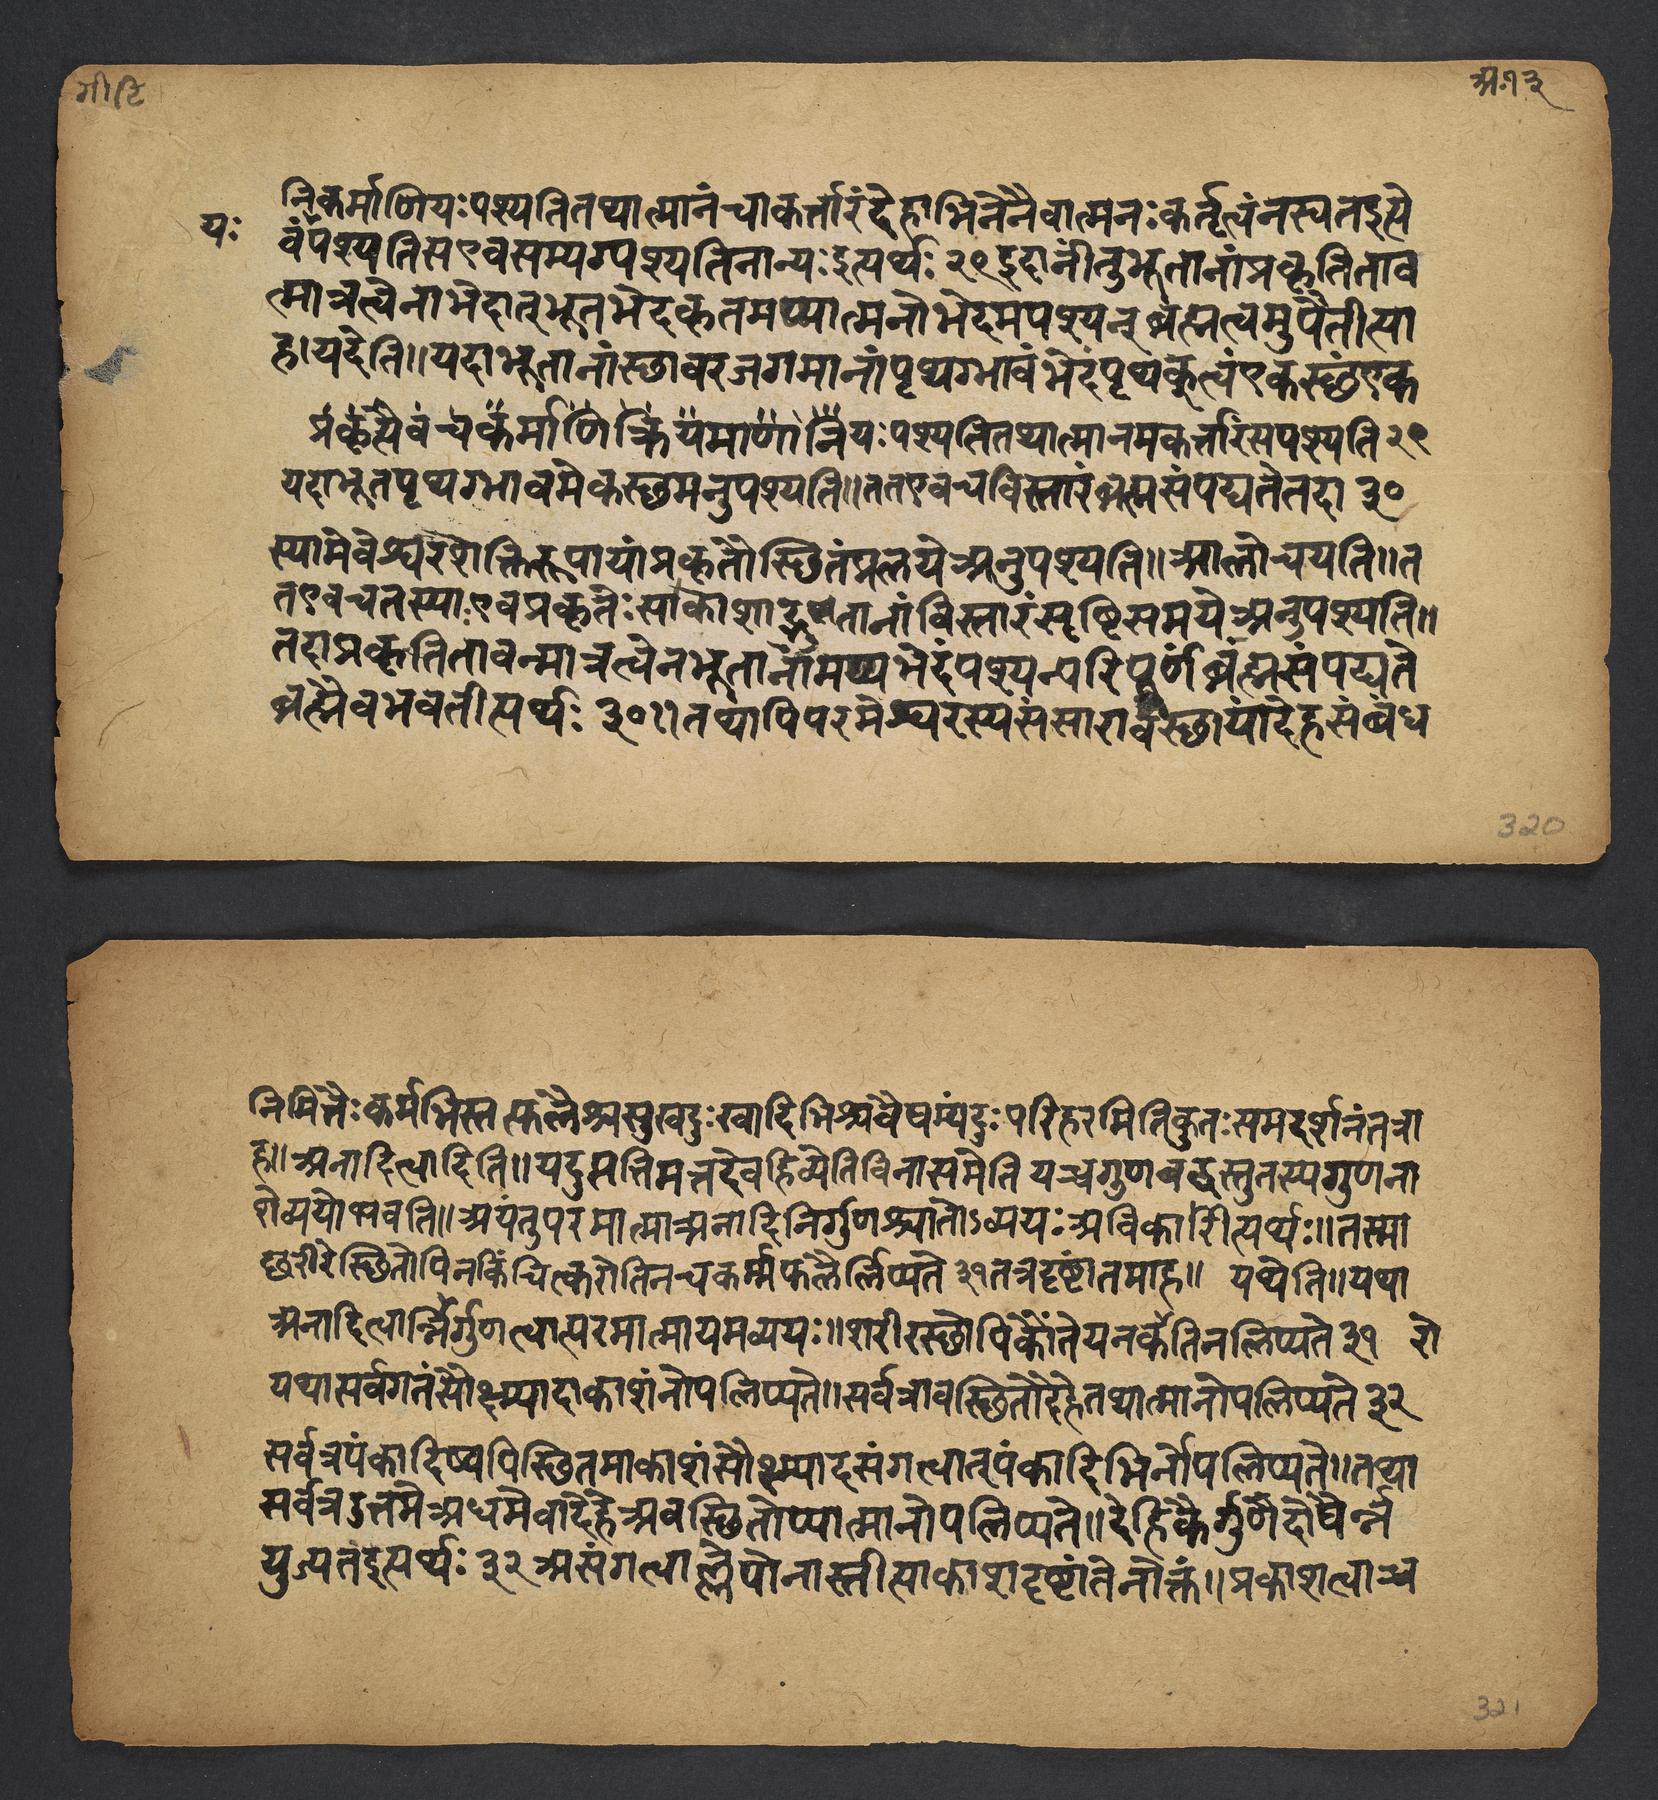 गी॰टि
अ॰१३
निकर्माणियःपश्यतितथात्मानंचाकर्त्तारंदेहाभिनेनैवात्मनःकर्तृत्वंनस्वतइत्ये
यः
वंपश्यतिसएवसम्यग्पश्यतिनान्यःइत्यर्थः २९इदानींतुभूतानांप्रकृतिताव
त्मात्रत्वेनाभेदात्भूतभेदकृतमप्यात्मनोभेदमपश्यन्ब्रंह्मत्वमुपैतीत्या
ह।यदेति॥यदाभूतानांस्थावरजगमानांपृथग्भावंभेदंपृथक्त्वंएकस्थंएक
प्रकृत्यैवचकर्माणिक्रियमाणानियःपश्यतितथात्मानमकर्त्तारंसपश्यति२९
यदाभूतपृथग्भावमेकस्थमनुपश्यति॥ततएवचविस्तारंब्रह्मसंपद्यतेतदा ३०
स्यामेवेश्वरशक्तिरूपायांप्रकृतौस्थितंप्रलयेअनुपश्यति॥आलोचयति॥त
तएवचतस्याएवप्रकृतेःसाकाशाद्भूतानांविस्तारंसृष्टिसमयेअनुपश्यति॥
तदाप्रकृतितावन्मात्रत्वेनभूतानामप्यभेदंपश्यन्परिपूर्णंब्रंह्मसंपद्यते
ब्रह्मैवभवतीत्यर्थः ३०॥तथापिपरमेश्वरस्यसंसारावस्थायांदेहसंबंध
320
निमित्तैःकर्मभिस्तत्फलैश्चसुखदुःखादिभिश्चवैषम्यंदुःपरिहरमितिकुतःसमदर्शनंतत्रा
ह॥अनादित्वादिति॥यदुत्पत्तिमत्तदेवहिव्येतिविनासमेतियच्चगुणवद्वस्तुतस्यगुणना
शेव्ययोभवति॥अयंतुपरमात्माअनादिनिर्गुणश्चातोऽव्ययःअविकारीत्यर्थः॥तस्मा
छरीरेस्थितोपिनकिंचित्करोतिनचकर्म्मफलैर्लिप्यते३१तत्रदृष्टांतमाह॥ यथेति॥यथा
अनादित्वार्न्निर्गुणत्वात्परमात्मायमव्ययः॥शरीरस्थोपिकौंतेयनकरोतिनलिप्यते३१ रो
यथासर्वगतंसौक्ष्म्यादाकाशंनोपलिप्यते॥सर्वत्रावस्थितोदेहेतथात्मानोपलिप्यते३२
सर्वत्रपंकादिष्वपिस्थितमाकाशंसौक्ष्म्यादसंगत्वात्पंकादिभिर्नोपलिप्यते॥तथा
सर्वत्रउत्तमेअधमेवादेहेअवस्थितोप्यात्मानोपलिप्यते॥देहिकैर्गुणैदोषैर्न्न
युज्यतइत्यर्थः ३२असंगत्वाल्लेपोनास्तीत्याकाशदृष्टांतेनोक्तं॥प्रकाशत्वाच्च
321